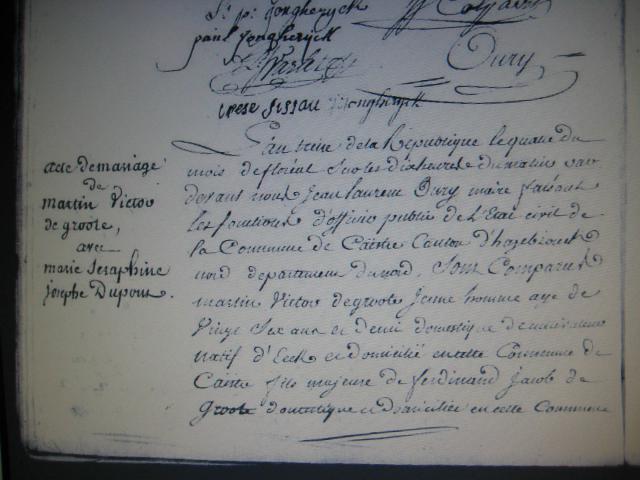 St. p: Jongheryck
paul Jongheryck
Oury
acte de mariage
de
martin Victor
de groote,
avec
marie Seraphine
josephe Dupont.
L'an treize de la République le quatre du
mois de floréal sur les dix heures du matin par
devant nous Jean laurent Oury maire faisant
les fonctions d'officie public de l'Etat civil de
la Commune de Caëstre Canton d'hazebrouck
nord departement du nord. Sont Comparus
martin Victor degroote Jeune homme age de
Vingt six ans et demi domestique de
natif d'Eeck et domicilié en cette Commune de
Caestre fils majeure de ferdinand Jacob de
Groote domestique et domiciliée en cette Commune